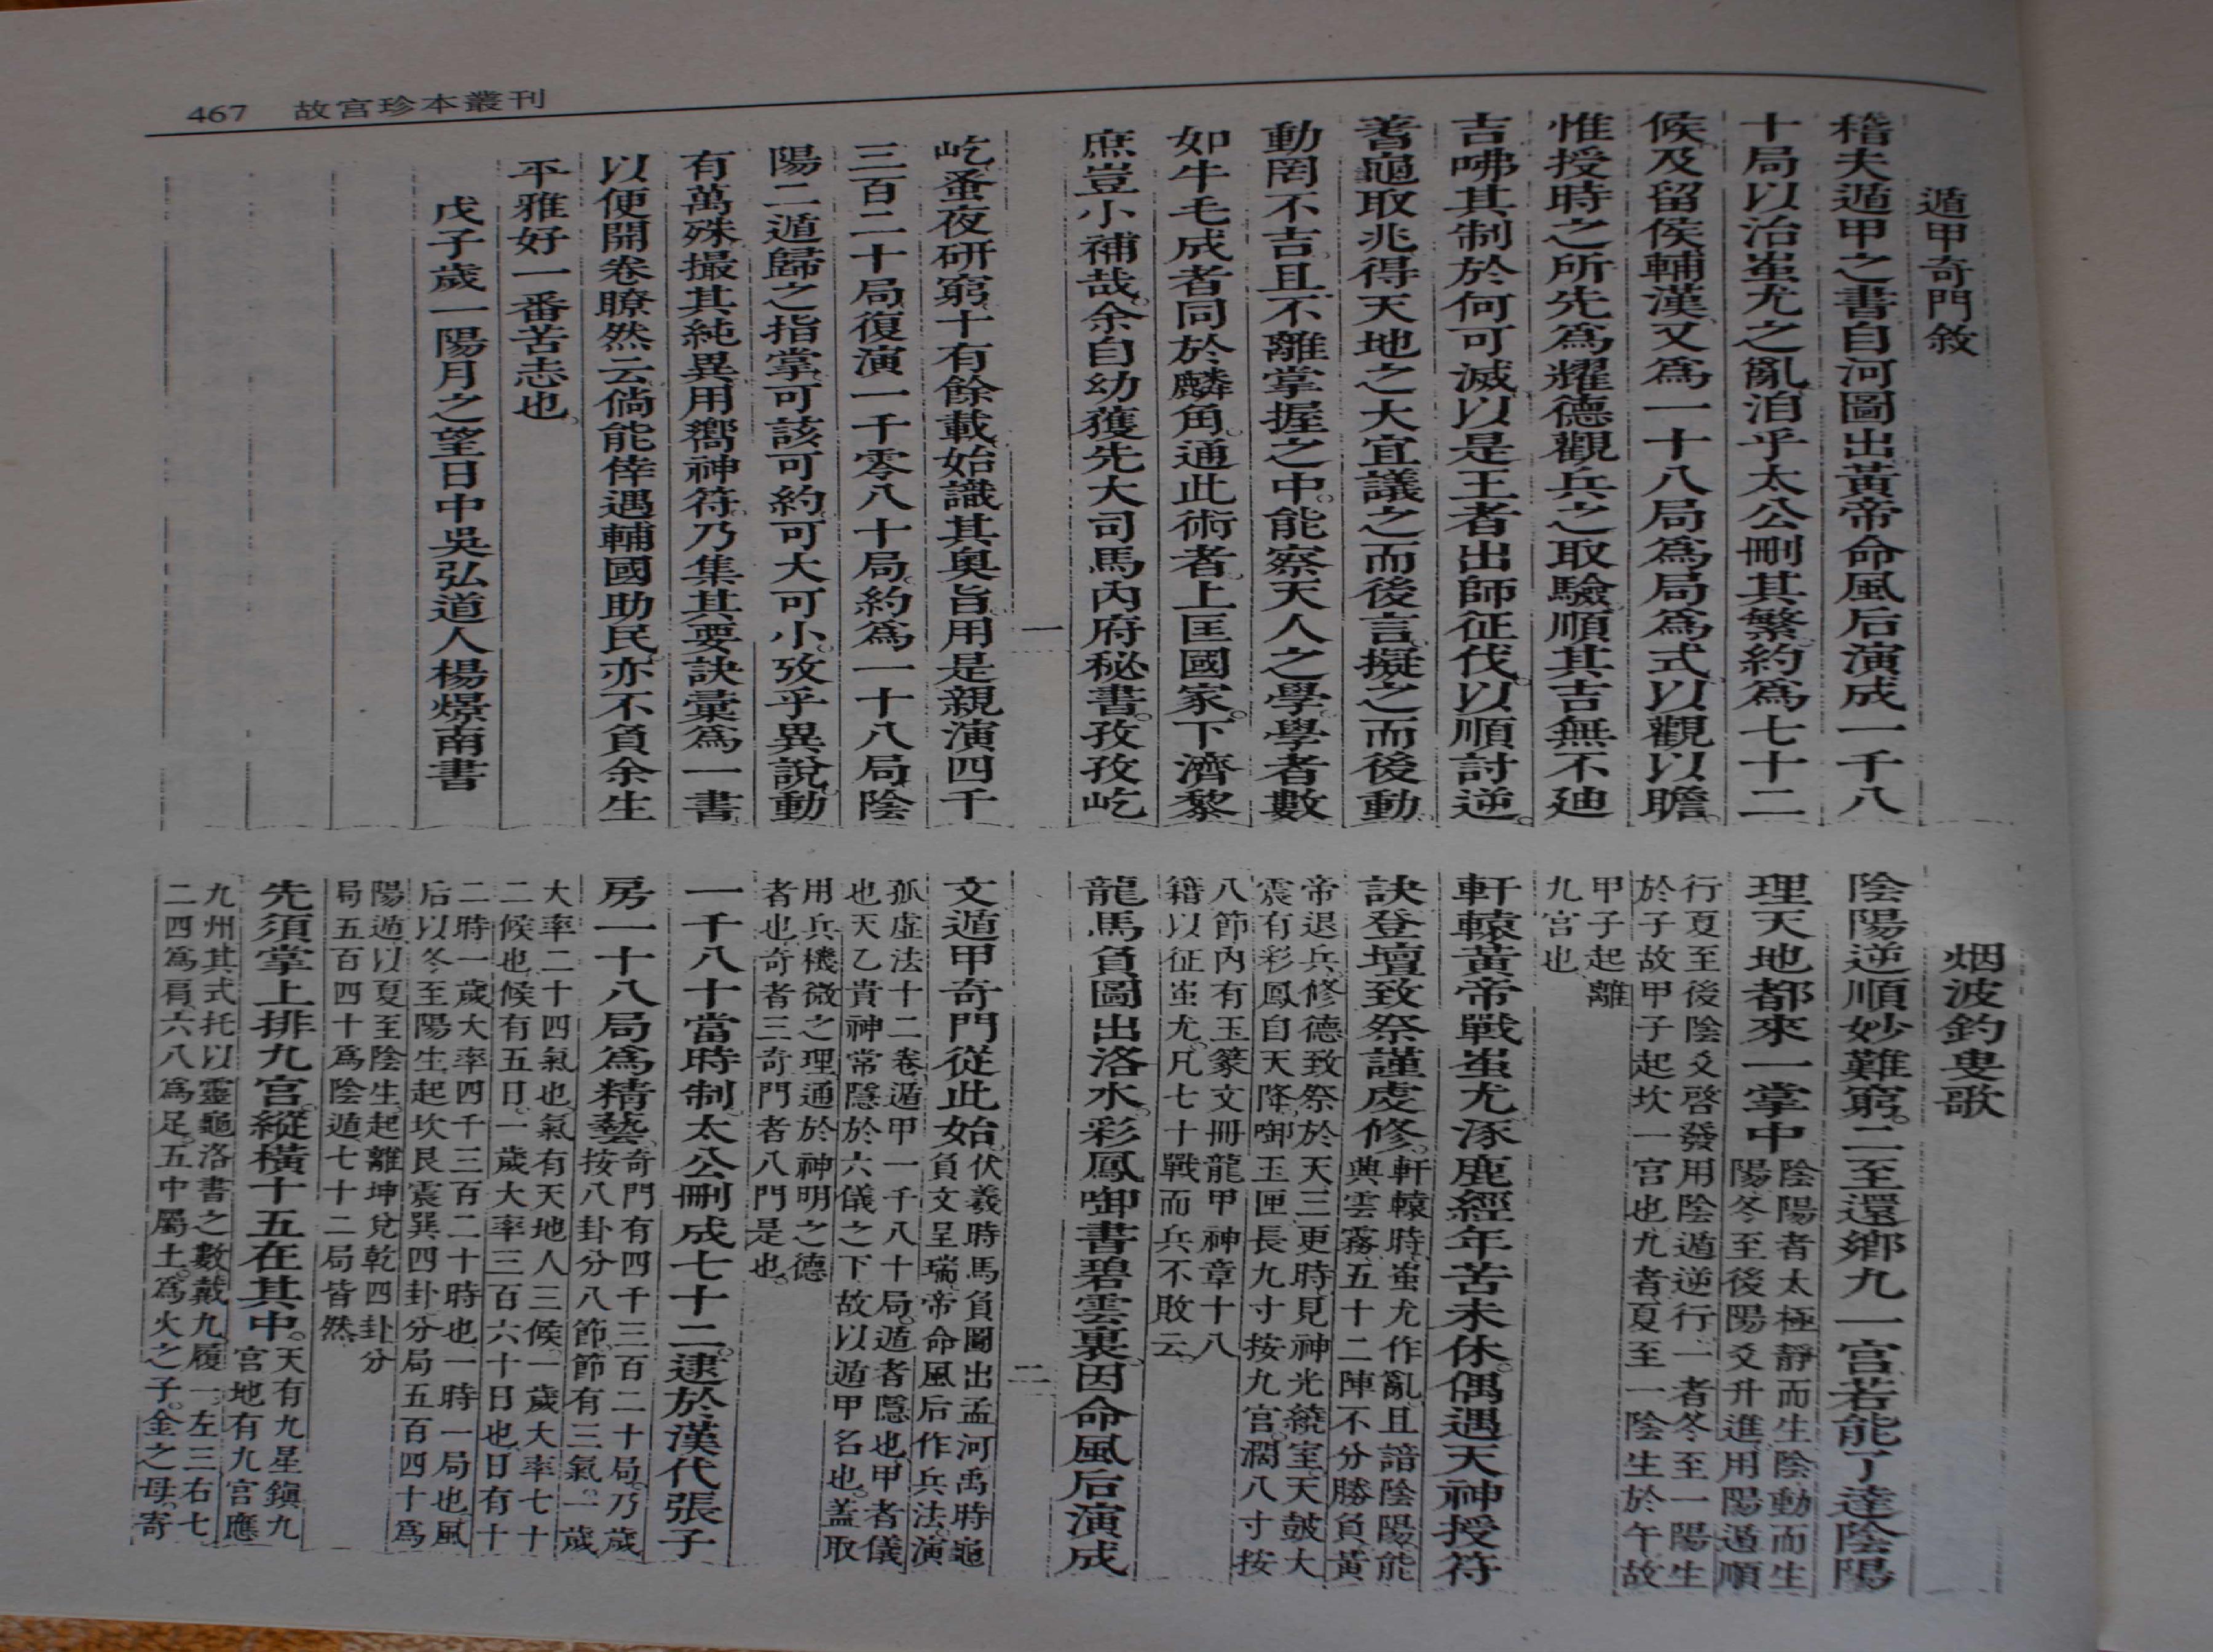 467 故宮珍本叢刊
遁甲奇門敘
稽夫遁甲之書自河圖出黃帝命風后演成一千八
十局以治蚩尤之亂洎乎太公刪其繁約為七十二
候及留侯輔漢又為一十八局為局為式以觀以瞻
惟授時之所先為耀德觀兵之取驗順其吉無不廸
吉咈其制於何可滅以是王者出師征伐以順討逆
蓍龜取兆得天地之大宜議之而後言擬之而後動
動罔不吉且不離掌握之中能察天人之學學者數
如牛毛成者同於麟角通此術者上匡國家下濟黎
庶豈小補哉余自幼獲先大司馬內府秘書孜孜屹
一
屹蚤夜研窮十有餘載始識其奧旨用是親演四千
三百二十局復演一千零八十局約為一十八局陰
陽二遁歸之指掌可該可約可大可小攷乎異說動
有萬殊撮其純異用嚮神符乃集其要訣彙為一書
以便開卷瞭然云倘能倖遇輔國助民亦不負余生
平雅好一番苦志也
戊子歲一陽月之望日中吳弘道人楊燝南書
烟波釣叟歌
陰陽逆順妙難窮二至還鄉九一宮若能了達陰陽
理天地都來一掌中
陰陽者太極靜而生陰動而生
陽冬至後陽爻升進用陽遁順
行夏至後陰爻啓發用陰遁逆行一者冬至一陽生
於子故甲子起坎一宮也九者夏至一陰生於午故
甲子起離
九宮也
軒轅黃帝戰蚩尤涿鹿經年苦未休偶遇天神授符
訣登壇致祭謹虔修
軒轅時蚩尤作亂且諳陰陽能
典雲霧五十二陣不分勝負黃
帝退兵修德致祭於天三更時見神光繞室天皷大
震有彩鳳自天降啣玉匣長九寸按九宮濶八寸按
八節內有玉篆文冊龍甲神章十八
籍以征蚩尤凡七十戰而兵不敗云
龍馬負圖出洛水彩鳳啣書碧雲裏因命風后演成
二
文遁甲奇門從此始
伏羲時馬負圖出孟河禹時龜
負文呈瑞帝命風后作兵法演
孤虛法十二卷遁甲一千八十局遁者隱也甲者儀
也天乙貴神常隱於六儀之下故以遁甲名也蓋取
用兵機微之理通於神明之德
者也奇者三奇門者八門是也
一千八十當時制太公刪成七十二逮於漢代張子
房一十八局為精藝
奇門有四千三百二十局乃歲
按八卦分八節節有三氣一歲
大率二十四氣也氣有天地人三候一歲大率七十
二候也候有五日一歲大率三百六十日也日有十
二時一歲大率四千三百二十時也一時一局也風
后以冬至陽生起坎艮震巽四卦分局五百四十為
陽遁以夏至陰生起離坤兌乾四卦分
局五百四十為陰遁七十二局皆然
先須掌上排九宮縱橫十五在其中
天有九星鎮九
宮地有九宮應
九州其式托以靈龜洛書之數戴九履一左三右七
二四為肩六八為足五中屬土為火之子金之母寄